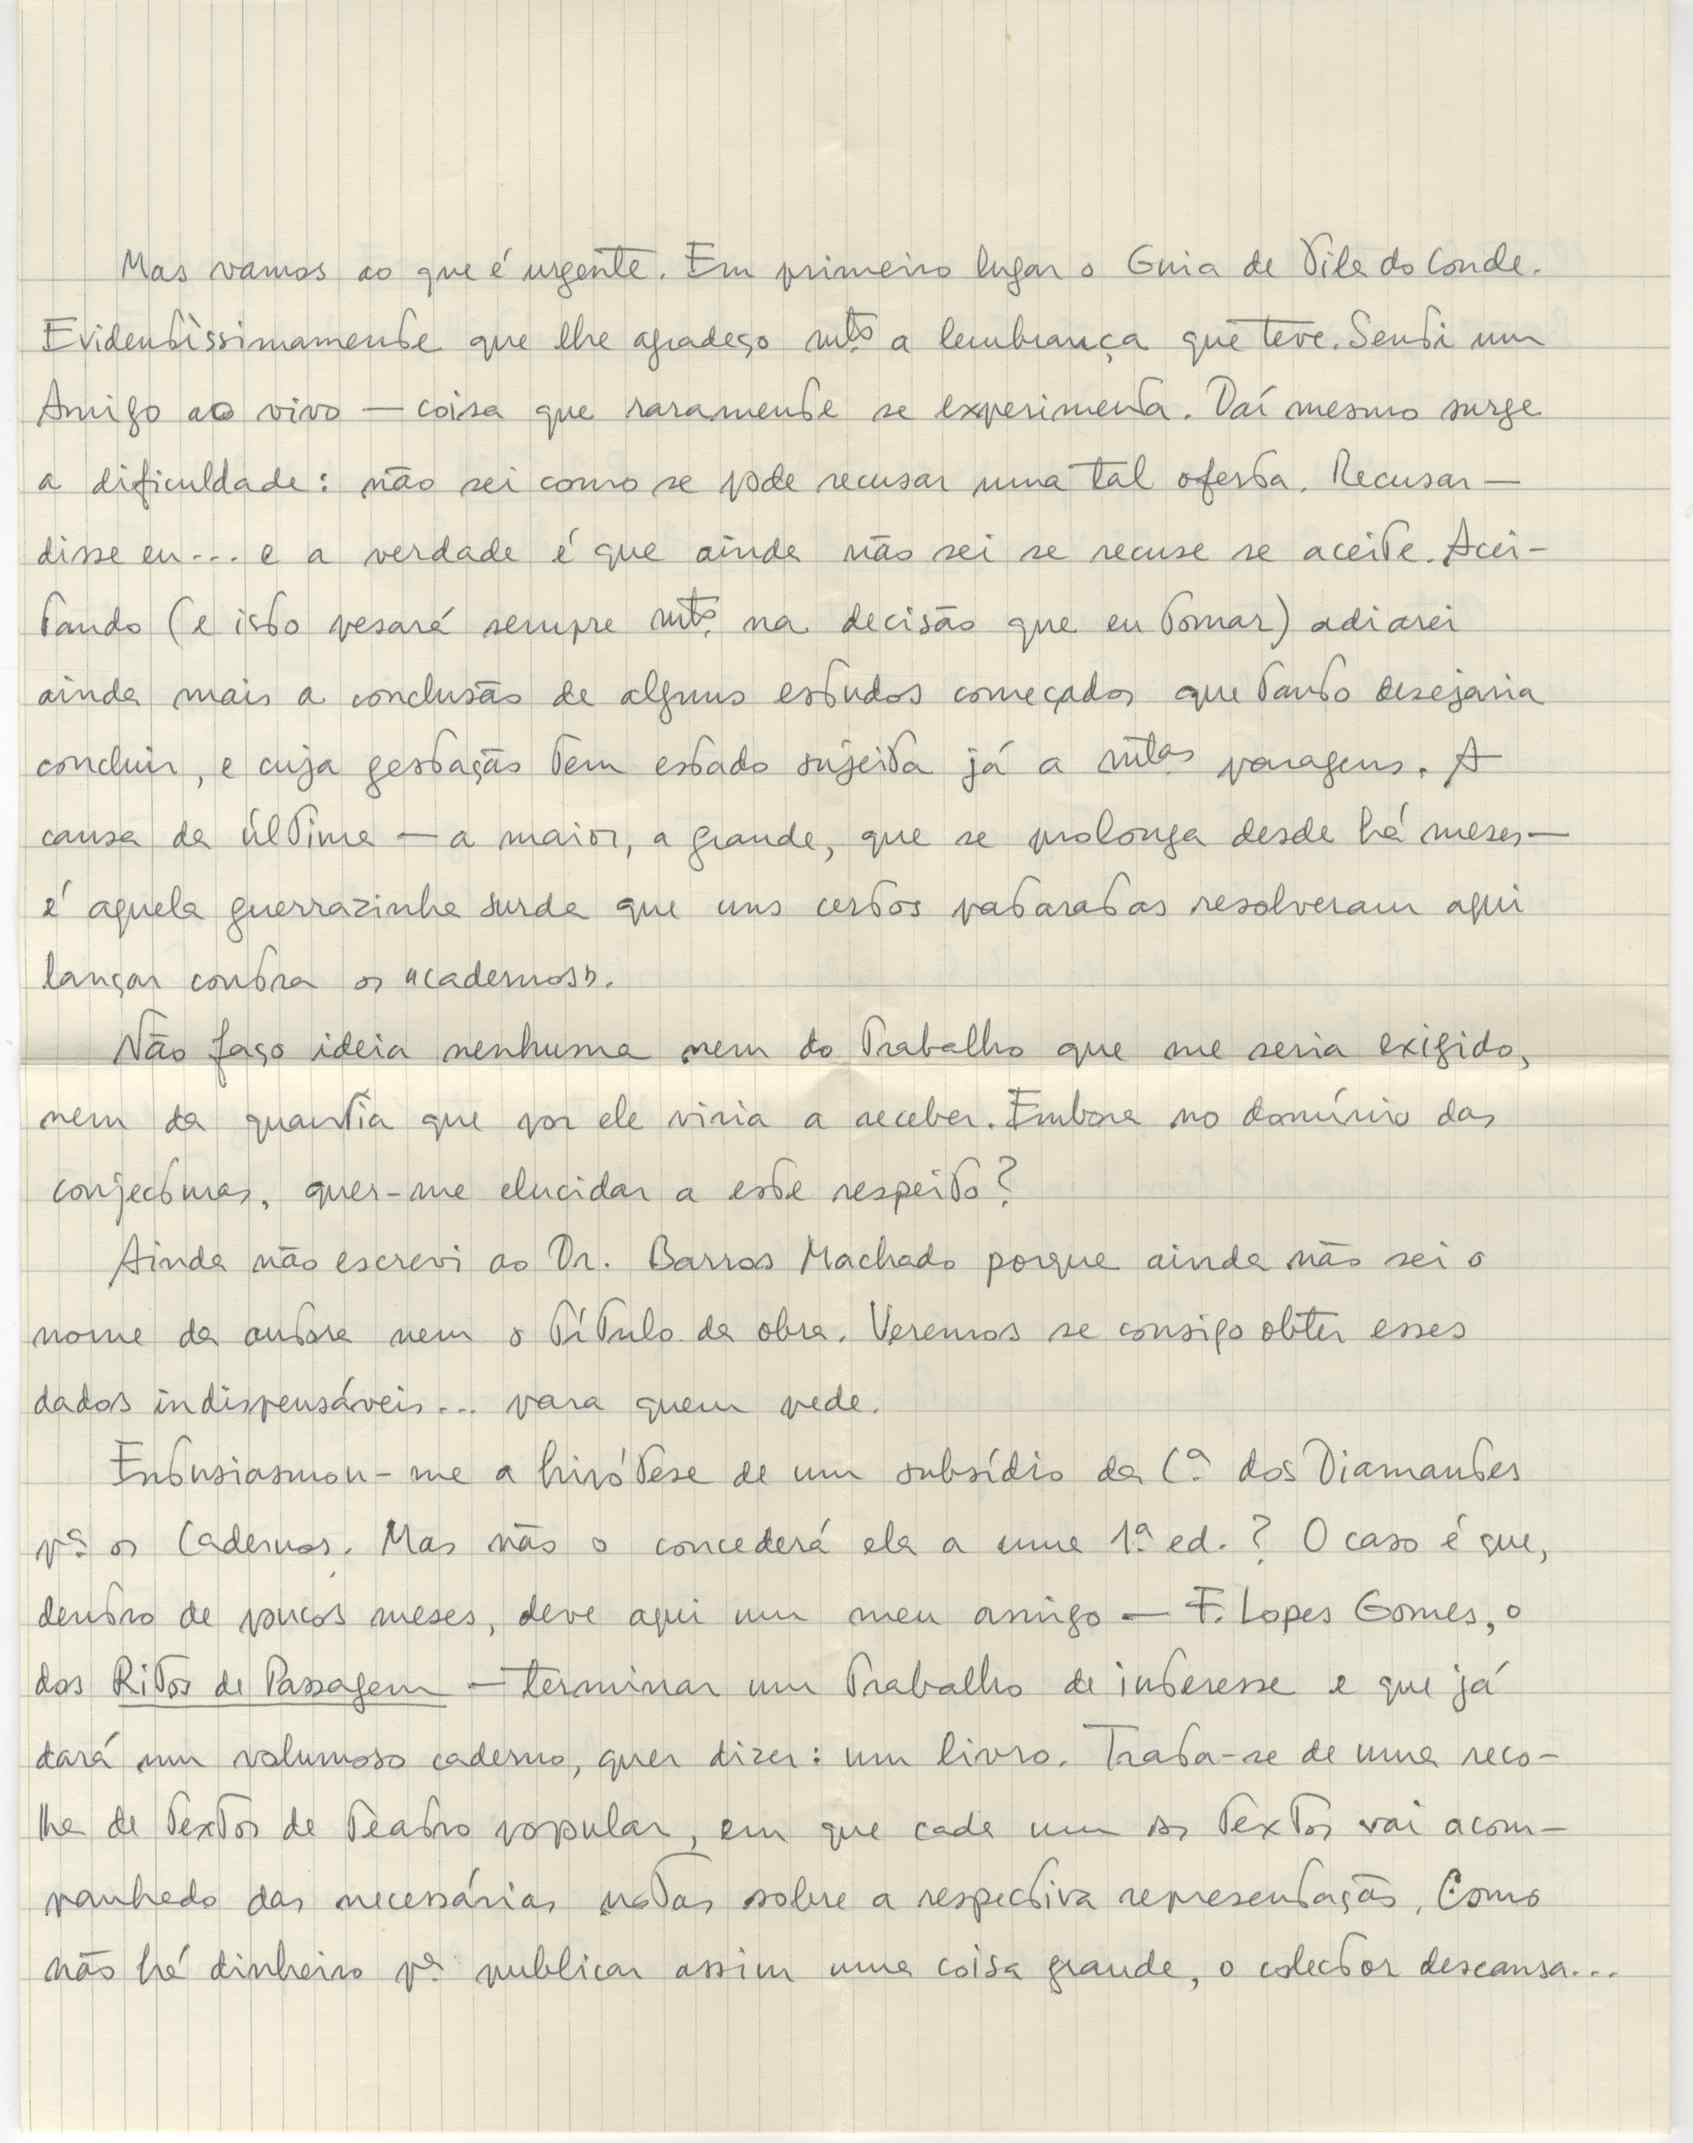 Mas vamos ao que é urgente. Em primeiro lugar o Guia de Vila do Conde.
Evidentìssimamente que lhe agradeço mto. a lembrança que teve. Senti um
Amigo ao vivo — coisa que raramente se experimenta. Daí mesmo surge
a dificuldade: não sei como se pode recusar uma tal oferta. Recusar —
disse eu... e a verdade é que ainda não sei se recuse se aceite. Acei-
tando (e isto pesará sempre mto. na decisão que eu tomar) adiarei
ainda mais a conclusão de alguns estudos começados que tanto desejaria
concluir, e cuja gestação tem estado sujeita já a mtas. paragens. A
causa da última — a maior, a grande, que se prolonga desde há meses —
é aquela guerrazinha surda que uns certos pataratas resolveram aqui
lançar contra os «cadernos».
Não faço ideia nenhuma nem do trabalho que me seria exigido,
nem da quantia que por ele viria a receber. Embora no domínio das
conjecturas, quer-me elucidar a este respeito?
Ainda não escrevi ao Dr. Barros Machado porque ainda não sei o
nome da autora nem o título da obra. Veremos se consigo obter esses
dados indispensáveis... para quem pede.
Entusiasmou-me a hipótese de um subsídio da C.ª dos Diamantes
p.ª os Cadernos. Mas não o concederá ela a uma 1.ª ed.? O caso é que,
dentro de poucos meses, deve aqui um meu amigo — F. Lopes Gomes, o
dos Ritos de Passagem — terminar um trabalho de interesse e que já
dará um volumoso caderno, quer dizer: um livro. Trata-se de uma reco-
lha de textos de teatro popular, em que cada um dos textos vai acom-
panhado das necessárias notas sobre a respectiva representação. Como
não há dinheiro p.ª publicar assim uma coisa grande, o colector descansa...